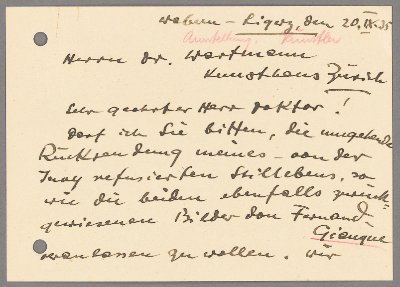 Wabern - Ligerz, den 20. IX. 35
Ausstellung Künstler
Herrn Dr. Wartmann
Kunsthaus Zürich
Sehr geehrter Herr Doktor!
Darf ich Sie bitten, die umgehende
Rücksendung meines - von der
Jury refusierten Stillebens, so
wie die beiden ebenfalls zurück-
gewiesenen Bilder von Fernand
Giauque
veranlassen zu wollen. Wir